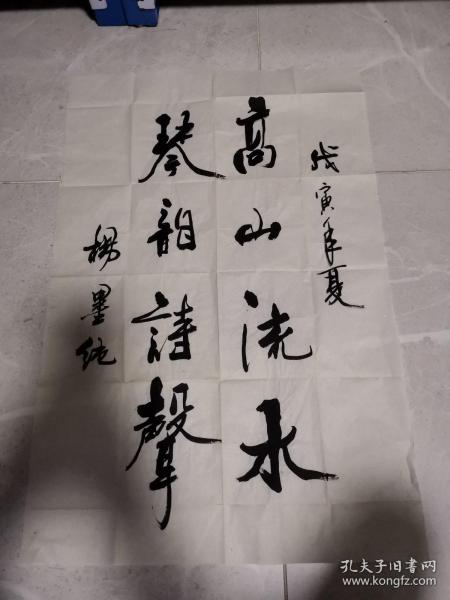 戊寅年夏
高山流水
琴韻詩聲
楊墨純
孔夫子旧书网
www.kongfz.com